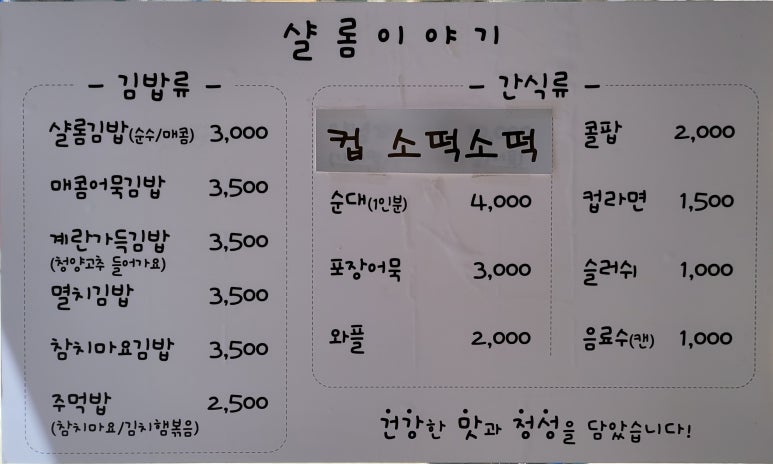 샬롬이야기
- 김밥류 -
샬롬김밥(순수/매콤) 3,000
매콤어묵김밥 3,500
계란가득김밥 3,500
(청양고추 들어가요)
멸치김밥 3,500
참치마요김밥 3,500
주먹밥 2,500
(참치마요/김치햄볶음)
- 간식류 -
컵 소떡소떡
순대(1인분) 4,000
포장어묵 3,000
와플 2,000
콜팝 2,000
컵라면 1,500
슬러쉬 1,000
음료수(캔) 1,000
건강한 맛과 정성을 담았습니다!